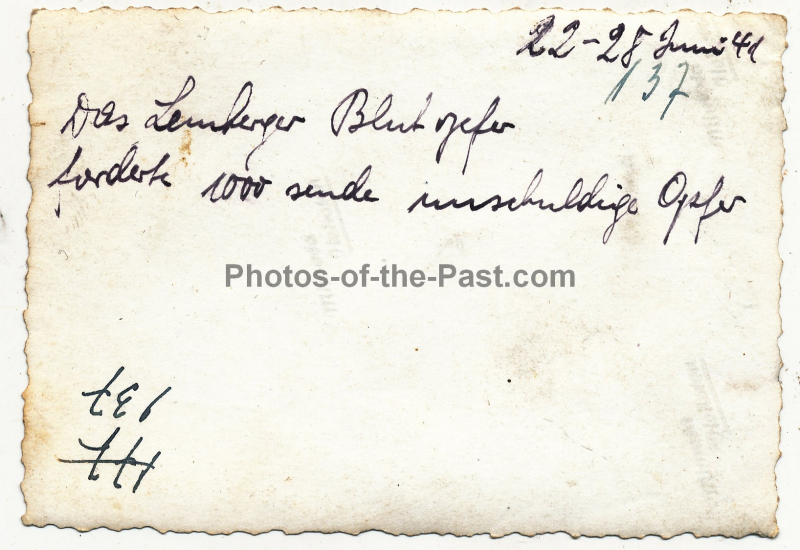 22-28 Juni 41
137
Das Lemberger Blutopfer
forderte 1000 sende unschuldige Opfer
Photos-of-the-Past.com
137
177